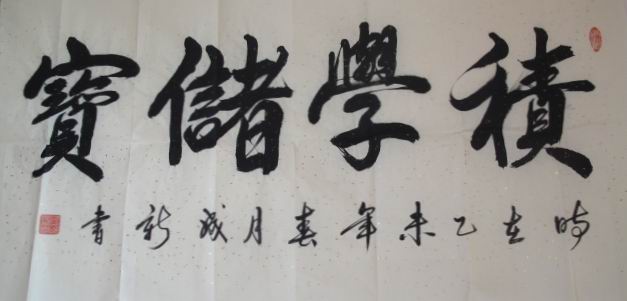 積學儲寶
時在乙未年春月成新書